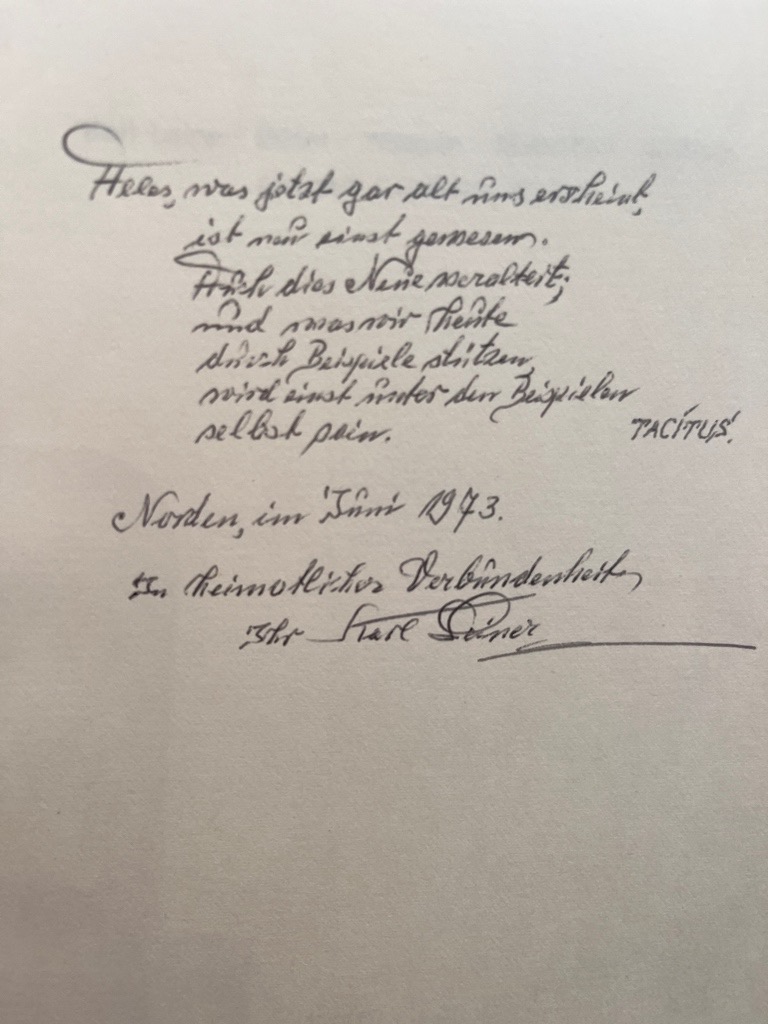 Alles, was jetzt gar alt uns erscheint,
ist neu einst gewesen.
Auch dies Neue veralteit;
und was wir heute
durch Beispiele stützen,
wird einst unter den Beispielen
selbst sein. TACITUS.
Norden, im Juni 1973.
In heimatlicher Verbundenheit,
Ihr Karl